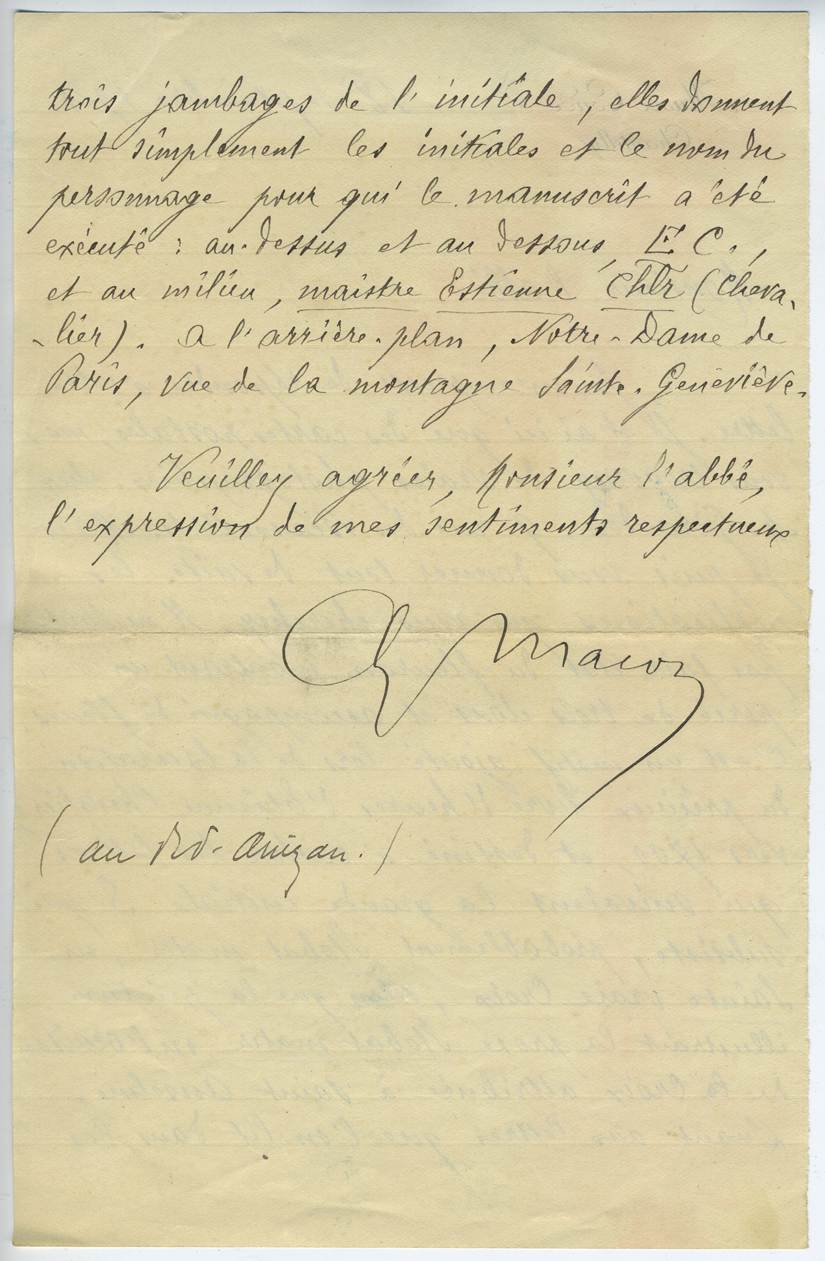 trois jambages de l'initiale, elles donnent
tout simplement les initiales et le nom du
personnage pour qui le manuscrit a été
exécuté : au-dessus et au dessous, E C.,
et au milieu, maistre Estienne Chlr (Cheva-
-lier). A l'arrière-plan, Notre-Dame de
Paris, vue de la montagne Sainte-Geneviève.
Veuillez agréer, Monsieur l'abbé,
l'expression de mes sentiments respectueux
G Macon
(au